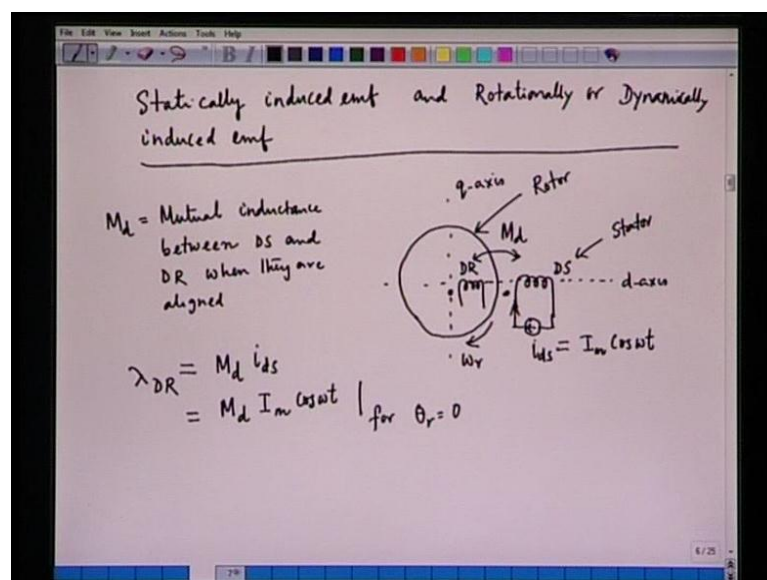 File Edit View Insert Actions Tools Help
B I
Statically induced emf and Rotationally or Dynamically
induced emf
q-axis Rotor
M_d = Mutual inductance
between DS and
DR when they are
aligned
M_d Stator
DR DS
d-axis
ω_r i_ds = I_m Cos ωt
λ_DR = M_d i_ds
= M_d I_m Cos ωt | for θ_r = 0
6/25